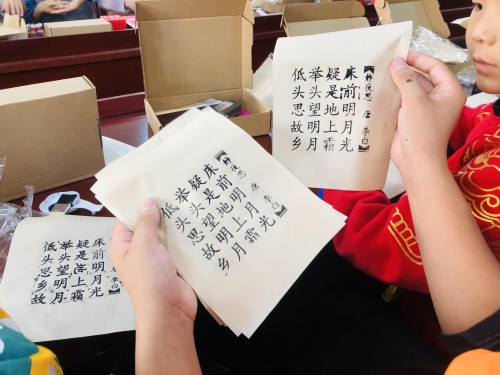 【静夜思】 唐 李白
床前明月光
疑是地上霜
举头望明月
低头思故乡
【静夜思】 唐 李白
床前明月光
疑是地上霜
举头望明月
低头思故乡
李白
床前明月光
疑是地上霜
举头望明月
低头思乡故